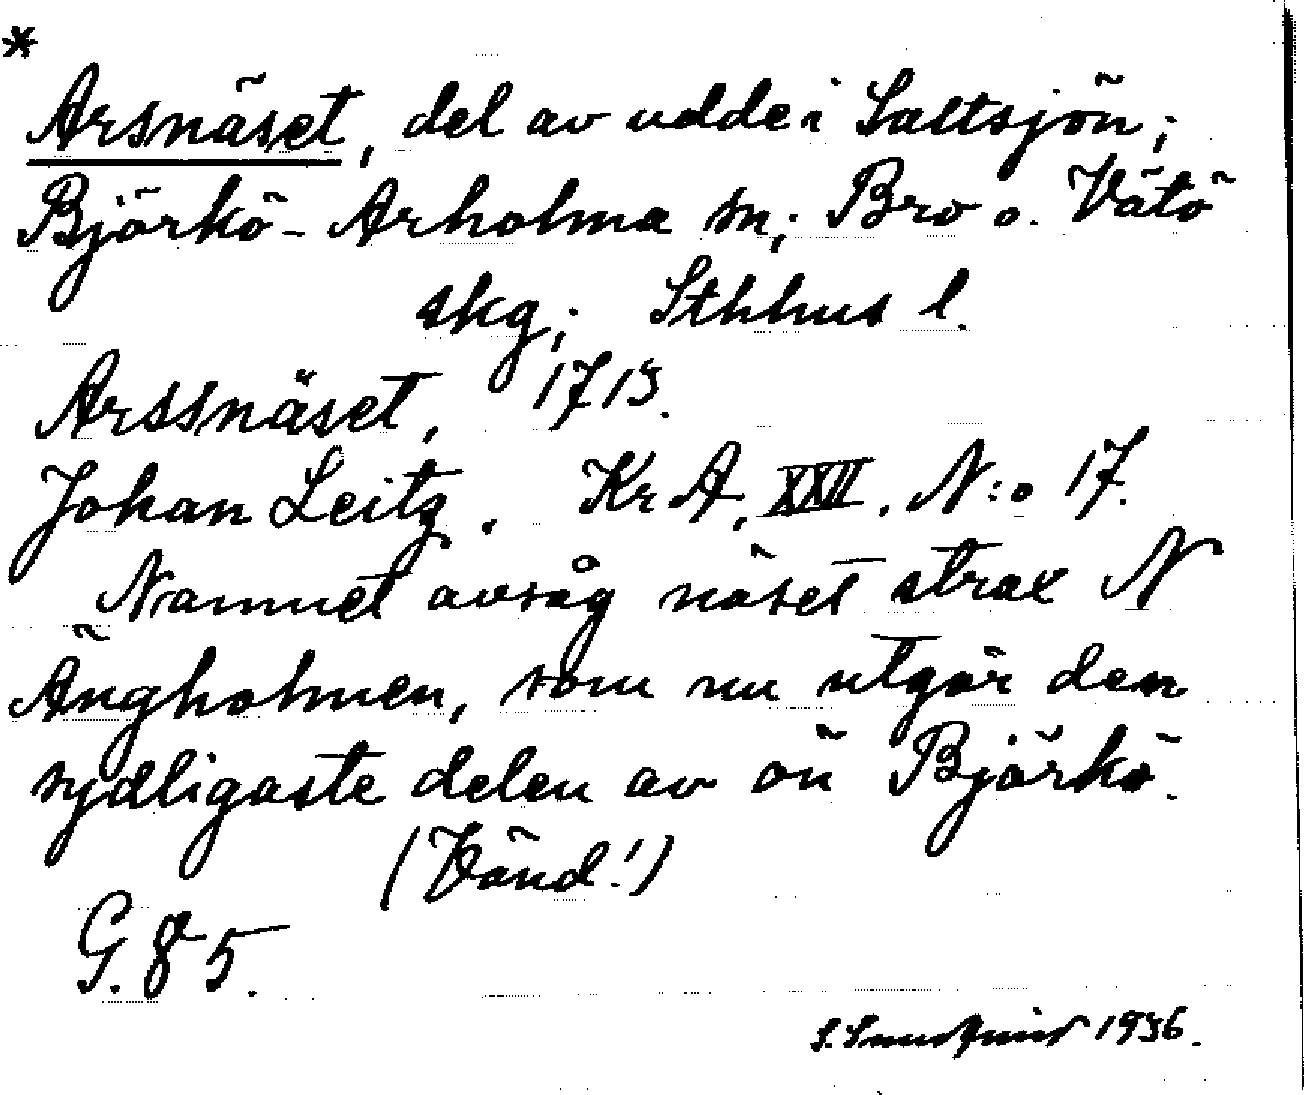 *
Arsnäset, del av udde i Saltsjön;
Björkö-Arholma sn; Bro o. Vätö
skg; Sthhus l.
Arssnäset, 1715.
Johan Leitz. Kr A, XXII. N:o 17.
Namnet avsåg näset strax N
Ängholmen, som nu utgör den
sydligaste delen av ön Björkö.
(Vänd!)
G. 85.
S. 1936.